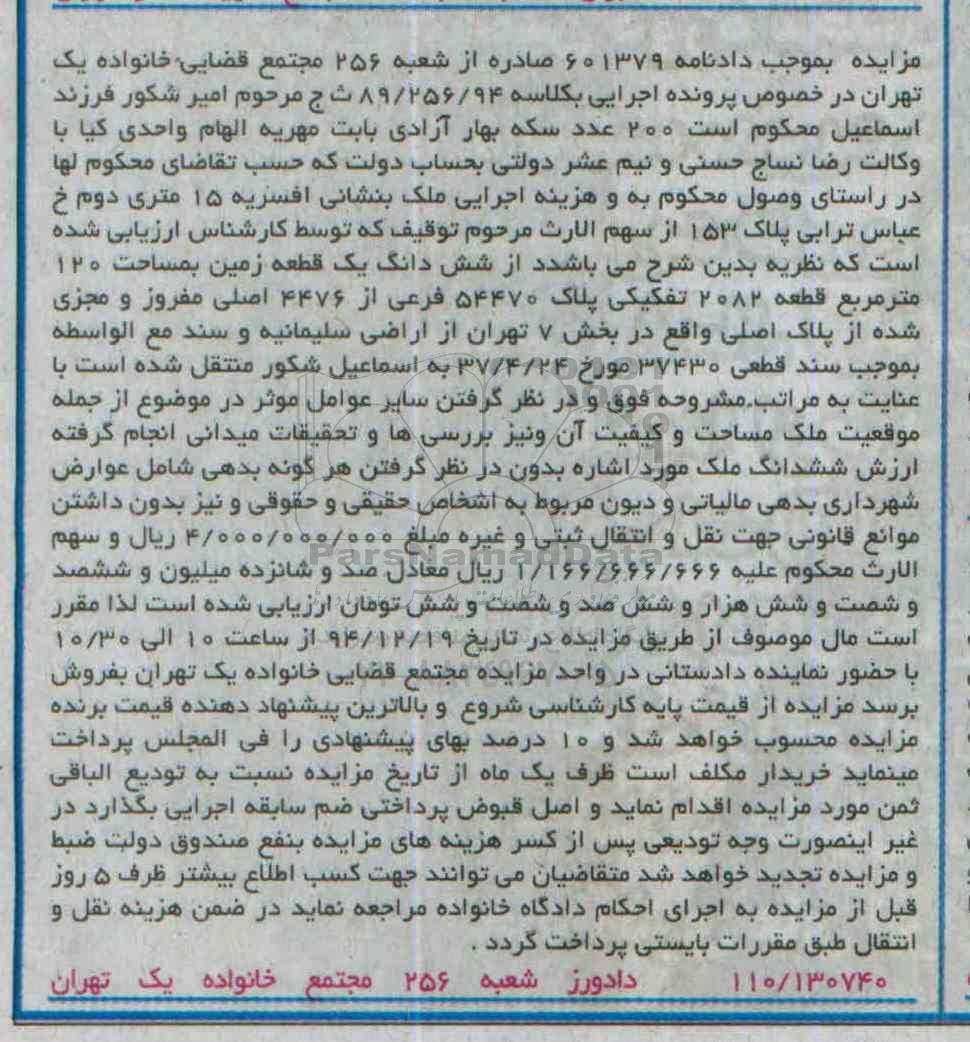 مزایده بموجب دادنامه ۶۰۱۳۷۹ صادره از شعبه ۲۵۶ مجتمع قضایی خانواده یک
تهران در خصوص پرونده اجرایی بکلاسه ۸۹/۲۵۶/۹۴ ث ج مرحوم امیر شکور فرزند
اسماعیل محکوم است ۲۰۰ عدد سکه بهار آزادی بابت مهریه الهام واحدی کیا با
وکالت رضا نساج حسنی و نیم عشر دولتی بحساب دولت که حسب تقاضای محکوم لها
در راستای وصول محکوم به و هزینه اجرایی ملک بنشانی افسریه ۱۵ متری دوم خ
عباس ترابی پلاک ۱۵۳ از سهم الارث مرحوم توقیف که توسط کارشناس ارزیابی شده
است که نظریه بدین شرح می باشدد از شش دانگ یک قطعه زمین بمساحت ۱۲۰
مترمربع قطعه ۲۰۸۲ تفکیکی پلاک ۵۴۴۷۰ فرعی از ۴۴۷۶ اصلی مفروز و مجزی
شده از پلاک اصلی واقع در بخش ۷ تهران از اراضی سلیمانیه و سند مع الواسطه
بموجب سند قطعی ۳۷۴۳۰ مورخ ۳۷/۴/۲۴ به اسماعیل شکور منتقل شده است با
عنایت به مراتب مشروحه فوق و در نظر گرفتن سایر عوامل موثر در موضوع از جمله
موقعیت ملک مساحت و کیفیت آن ونیز بررسی ها و تحقیقات میدانی انجام گرفته
ارزش ششدانگ ملک مورد اشاره بدون در نظر گرفتن هر گونه بدهی شامل عوارض
شهرداری بدهی مالیاتی و دیون مربوط به اشخاص حقیقی و حقوقی و نیز بدون داشتن
موانع قانونی جهت نقل و انتقال ثبتی و غیره مبلغ ۴/۰۰۰/۰۰۰/۰۰۰ ریال و سهم
ParsNamadData
الارث محکوم علیه ۱/۱۶۶/۶۶۶/۶۶۶ ریال معادل صد و شانزده میلیون و ششصد
و شصت و شش هزار و شش صد و شصت و شش تومان ارزیابی شده است لذا مقرر
است مال موصوف از طریق مزایده در تاریخ ۹۴/۱۲/۱۹ از ساعت ۱۰ الی ۱۰/۳۰
با حضور نماینده دادستانی در واحد مزایده مجتمع قضایی خانواده یک تهران بفروش
برسد مزایده از قیمت پایه کارشناسی شروع و بالاترین پیشنهاد دهنده قیمت برنده
مزایده محسوب خواهد شد و ۱۰ درصد بهای پیشنهادی را فی المجلس پرداخت
مینماید خریدار مکلف است ظرف یک ماه از تاریخ مزایده نسبت به تودیع الباقی
ثمن مورد مزایده اقدام نماید و اصل قبوض پرداختی ضم سابقه اجرایی بگذارد در
غیر اینصورت وجه تودیعی پس از کسر هزینه های مزایده بنفع صندوق دولت ضبط
و مزایده تجدید خواهد شد متقاضیان می توانند جهت کسب اطلاع بیشتر ظرف ۵ روز
قبل از مزایده به اجرای احکام دادگاه خانواده مراجعه نماید در ضمن هزینه نقل و
انتقال طبق مقررات بایستی پرداخت گردد .
۱۱۰/۱۳۰۷۴۰ دادورز شعبه ۲۵۶ مجتمع خانواده یک تهران